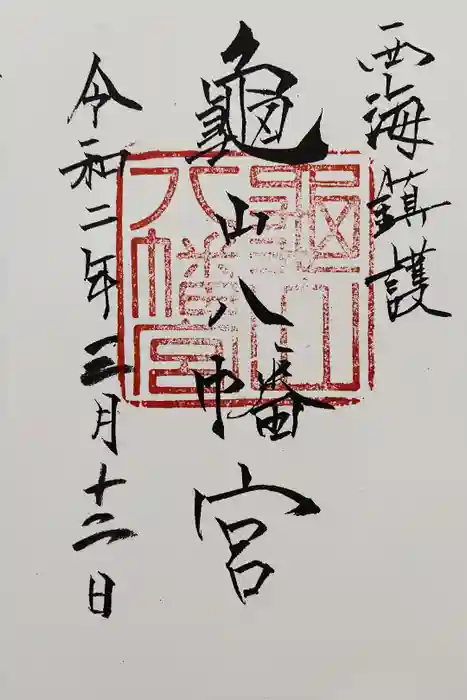 西海鎮護
龜山八幡宮
令和二年三月十二日
龜山
八幡宮